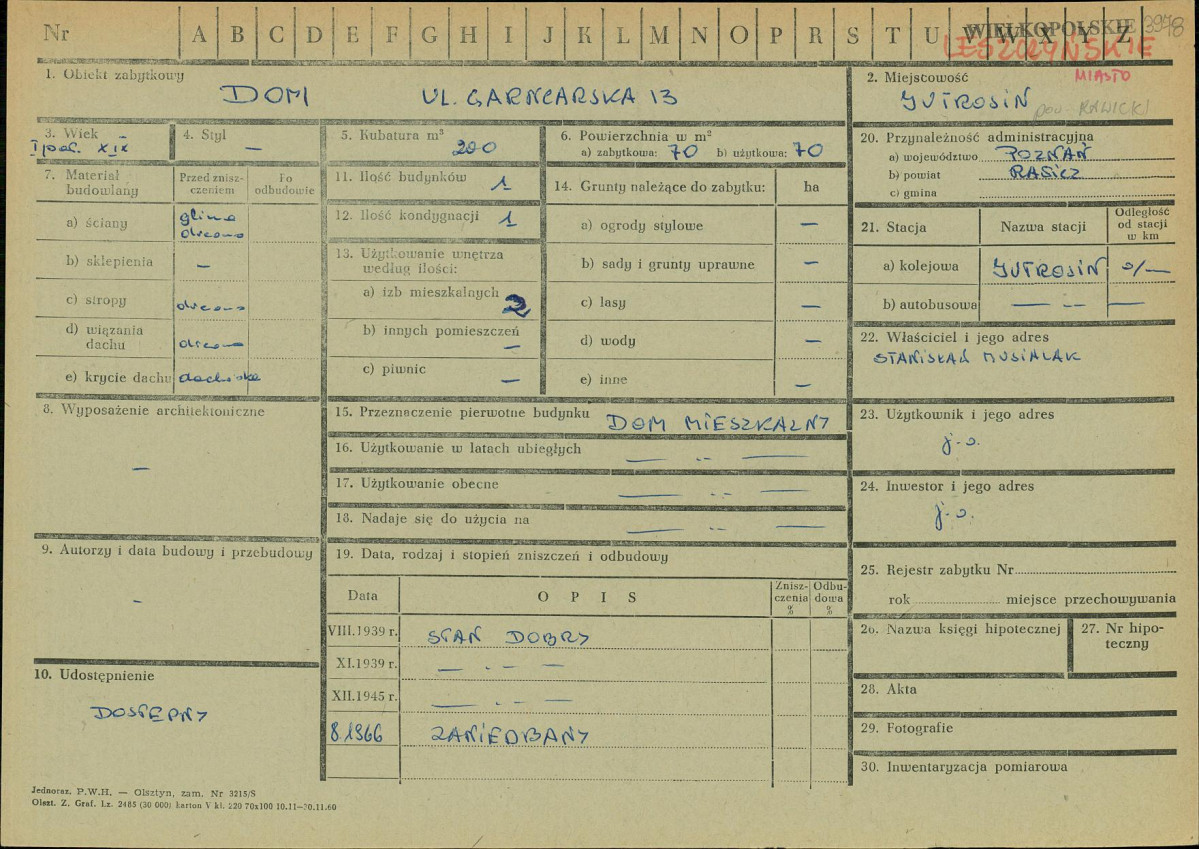 Nr A B C D E F G H I J K L M N O P R S T U W X Y Z
WIELKOPOLSKIE 3978
LESZCZYŃSKIE
MIASTO
1. Obiekt zabytkowy
DOM UL. GARNCARSKA 13
2. Miejscowość
JUTROSIN pow. RAWICKI
3. Wiek
I poł. XIX
4. Styl
—
5. Kubatura m³
200
6. Powierzchnia w m²
a) zabytkowa: 70 b) użytkowa: 70
7. Materiał budowlany
Przed zniszczeniem
Po odbudowie
a) ściany glina drewno
b) sklepienia —
c) stropy drewno
d) wiązania dachu drewno
e) krycie dachu dachówka
8. Wyposażenie architektoniczne
—
9. Autorzy i data budowy i przebudowy
—
10. Udostępnienie
DOSTĘPNY
11. Ilość budynków 1
12. Ilość kondygnacji 1
13. Użytkowanie wnętrza według ilości:
a) izb mieszkalnych 2
b) innych pomieszczeń —
c) piwnic —
14. Grunty należące do zabytku: ha
a) ogrody stylowe —
b) sady i grunty uprawne —
c) lasy —
d) wody —
e) inne —
15. Przeznaczenie pierwotne budynku DOM MIESZKALNY
16. Użytkowanie w latach ubiegłych — „ —
17. Użytkowanie obecne — „ —
18. Nadaje się do użycia na — „ —
19. Data, rodzaj i stopień zniszczeń i odbudowy
Data O P I S Zniszczenia % Odbudowa %
VIII.1939 r. STAN DOBRY
XI.1939 r. — „ —
XII.1945 r. — „ —
8 1966 ZANIEDBANY
20. Przynależność administracyjna
a) województwo POZNAŃ
b) powiat RAWICZ
c) gmina
21. Stacja Nazwa stacji Odległość od stacji w km
a) kolejowa JUTROSIN
b) autobusowa — „ — —
22. Właściciel i jego adres
STANISŁAW MUSIALAK
23. Użytkownik i jego adres
j.w.
24. Inwestor i jego adres
j.w.
25. Rejestr zabytku Nr
rok miejsce przechowywania
26. Nazwa księgi hipotecznej
27. Nr hipoteczny
28. Akta
29. Fotografie
30. Inwentaryzacja pomiarowa
Jednoraz. P.W.H. — Olsztyn, zam. Nr 3215/S
Olszt. Z. Graf. Lz. 2485 (30 000) karton V kl. 220 70x100 10.11—30.11.60